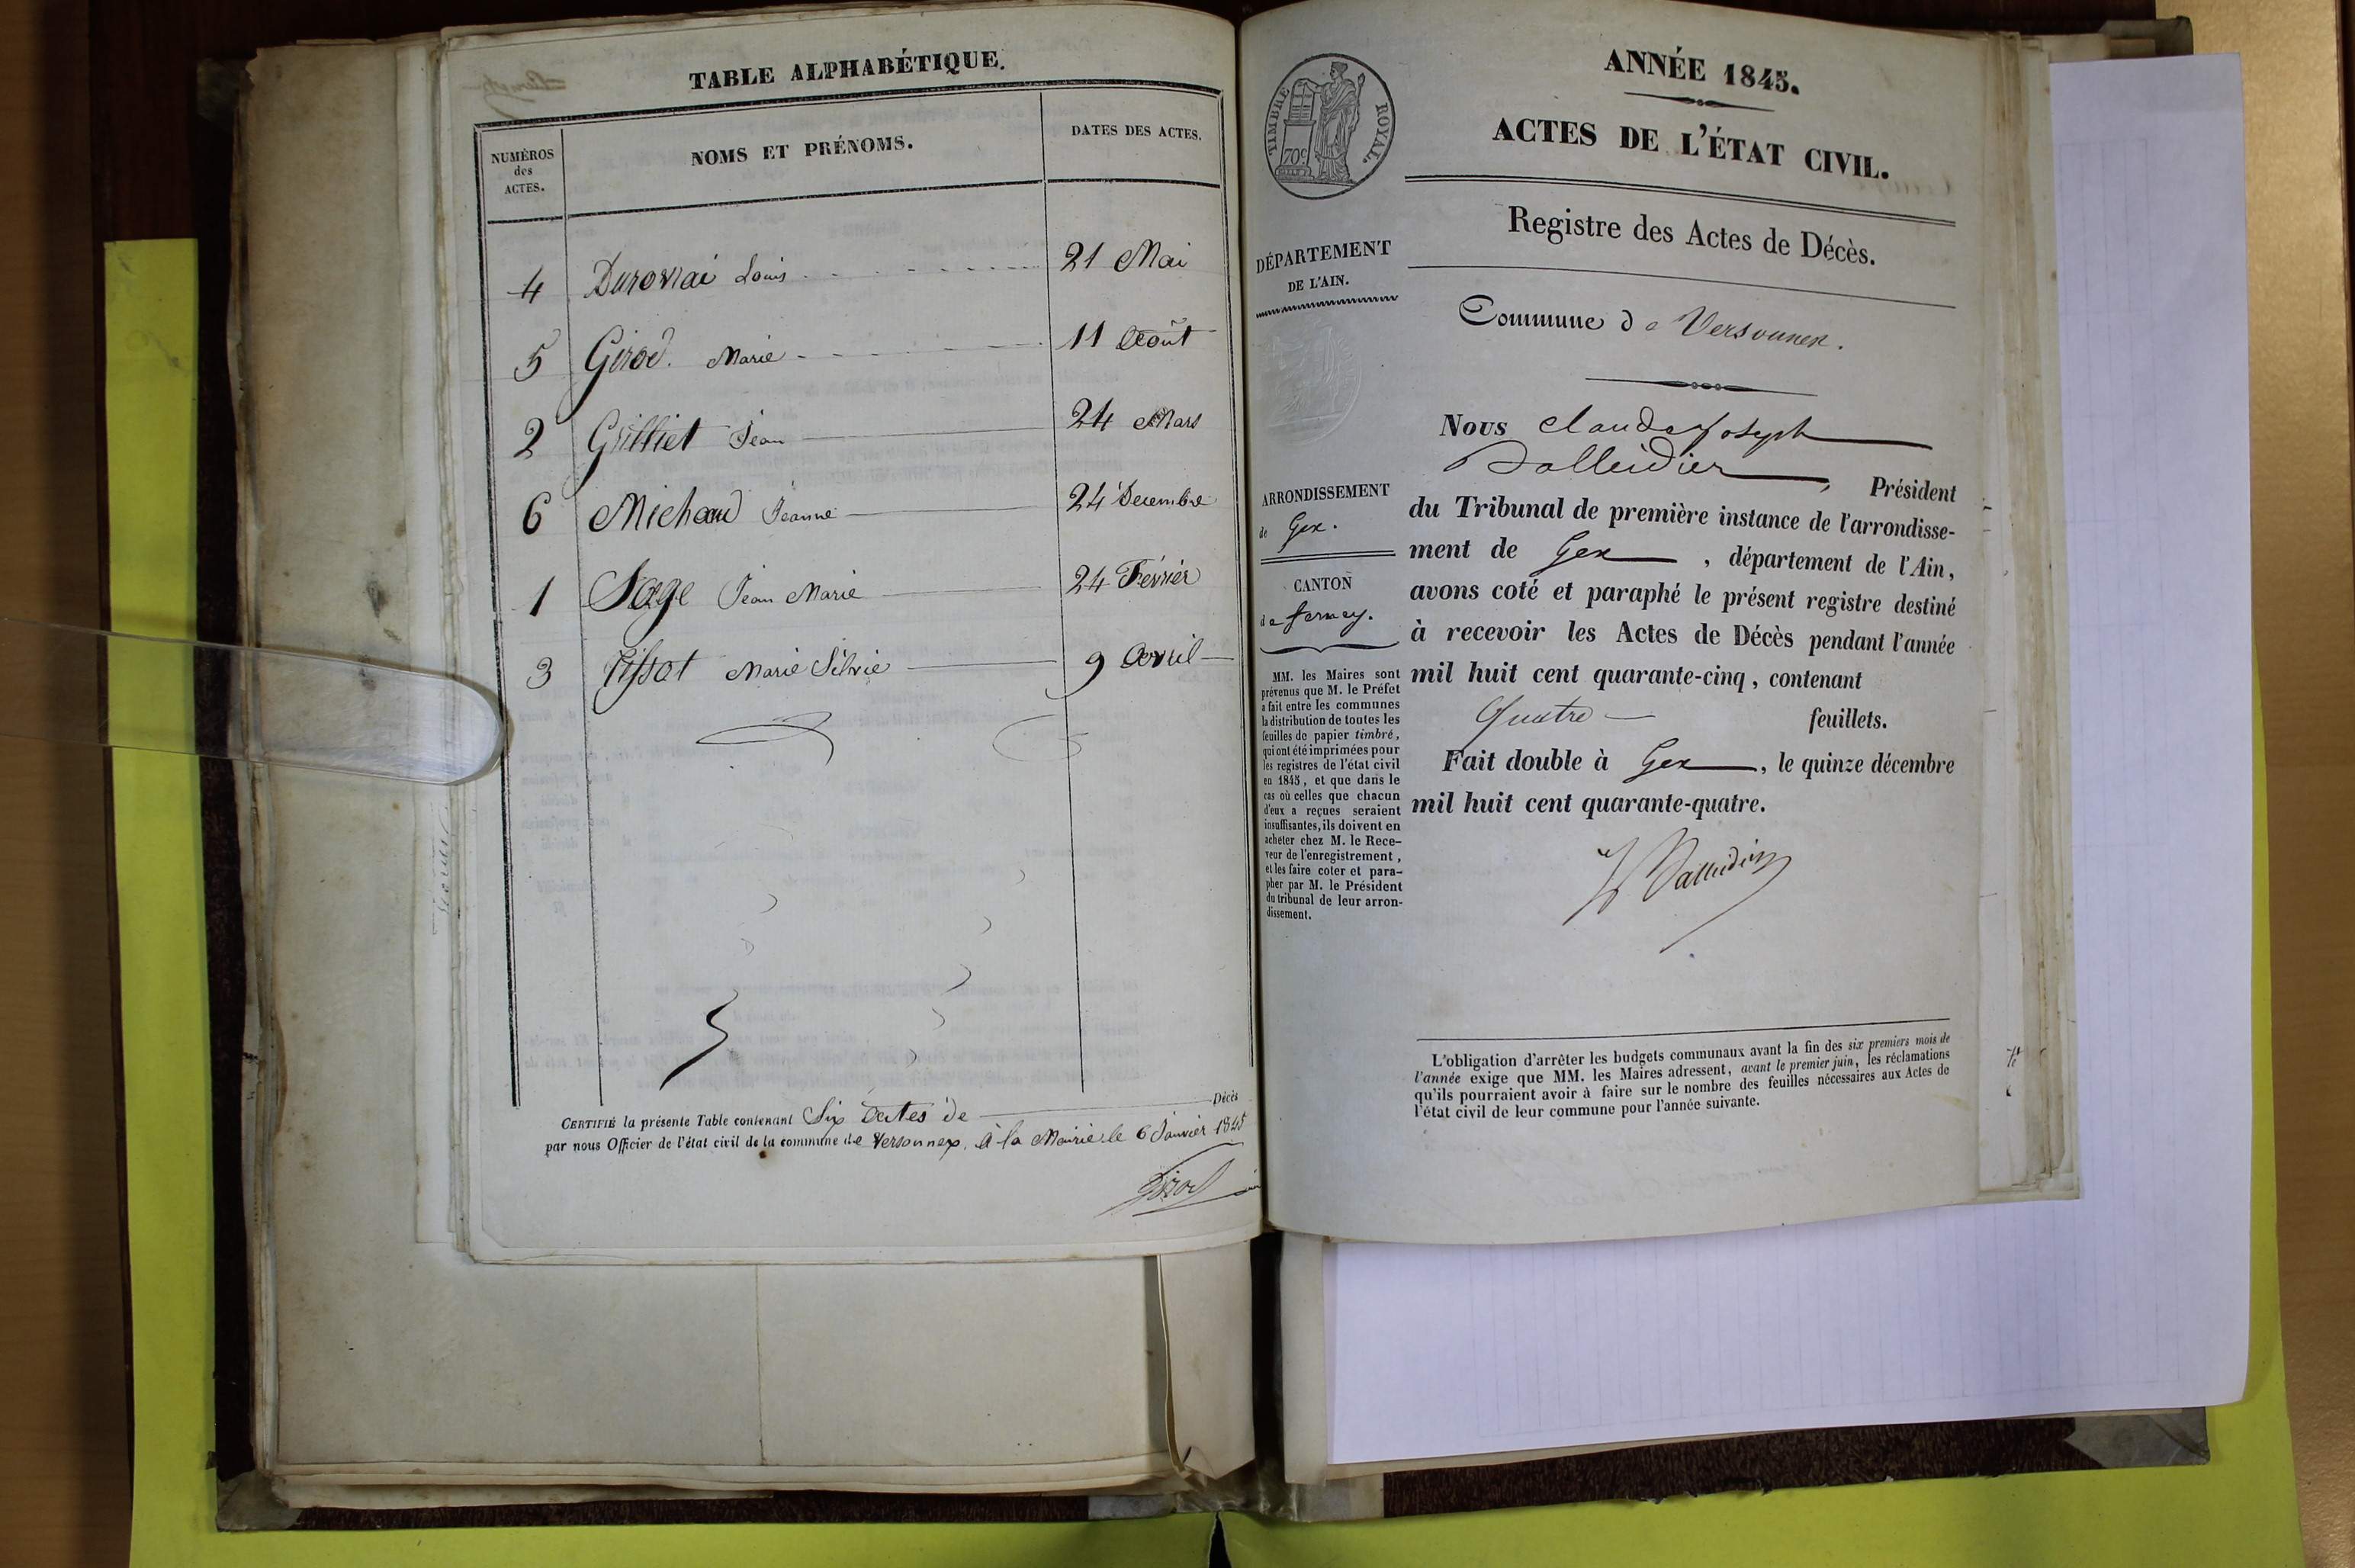 TABLE ALPHABÉTIQUE.
NUMÉROS
des
ACTES.
NOMS ET PRÉNOMS.
DATES DES ACTES.
4 Louis 21 Mai
5 Girod. Marie 11 Août
2 Grilliet Jean 24 Mars
6 Michaud Jeanne 24 Decembre
1 Sage Jean Marie 24 Février
3 Tissot Marie Silvie 9 Avril
CERTIFIÉ la présente Table contenant Six Actes de Décès
par nous Officier de l'état civil de la commune de Versonnex. à la Mairie le 6 Janvier 1845
Girod
TIMBRE ROYAL.
70c
ANNÉE 1845.
ACTES DE L'ÉTAT CIVIL.
Registre des Actes de Décès.
DÉPARTEMENT
DE L'AIN.
Commune de Versonnex.
ARRONDISSEMENT
de Gex.
CANTON
de ferney.
MM. les Maires sont
prévenus que M. le Préfet
a fait entre les communes
la distribution de toutes les
feuilles de papier timbré,
qui ont été imprimées pour
les registres de l'état civil
en 1845, et que dans le
cas où celles que chacun
d'eux a reçues seraient
insuffisantes, ils doivent en
acheter chez M. le Rece-
veur de l'enregistrement,
et les faire coter et para-
pher par M. le Président
du tribunal de leur arron-
dissement.
Nous Claude Joseph
Balleidier, Président
du Tribunal de première instance de l'arrondisse-
ment de Gex, département de l'Ain,
avons coté et paraphé le présent registre destiné
à recevoir les Actes de Décès pendant l'année
mil huit cent quarante-cinq, contenant
Quatre feuillets.
Fait double à Gex, le quinze décembre
mil huit cent quarante-quatre.
Balleidier
L'obligation d'arrêter les budgets communaux avant la fin des six premiers mois de
l'année exige que MM. les Maires adressent, avant le premier juin, les réclamations
qu'ils pourraient avoir à faire sur le nombre des feuilles nécessaires aux Actes de
l'état civil de leur commune pour l'année suivante.